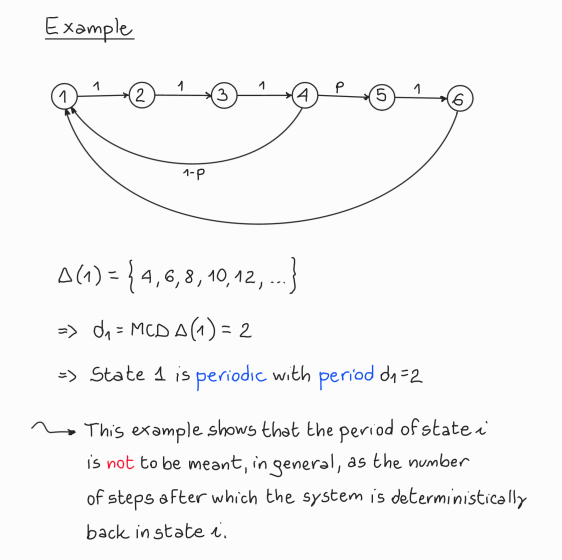 Example
1 1 2 1 3 1 4 P 5 1 6
1-P
Δ(1) = { 4, 6, 8, 10, 12, ... }
=> d₁ = MCD Δ(1) = 2
=> State 1 is periodic with period d₁=2
This example shows that the period of state i
is not to be meant, in general, as the number
of steps after which the system is deterministically
back in state i.